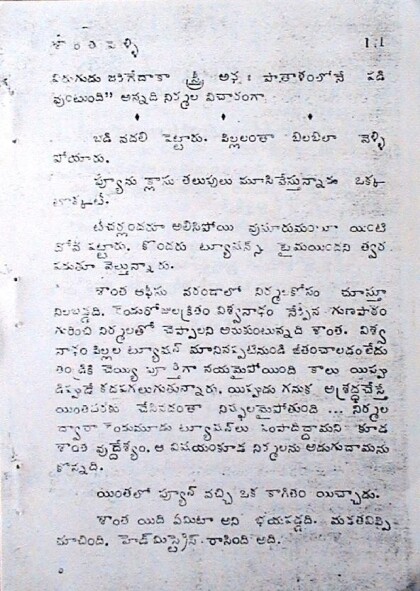 శాంత పెళ్ళి 111
విరుగుడు జరిగేదాకా స్త్రీ అధః పాతాళంలోనే పడి
వుంటుంది" అన్నది నిర్మల విచారంగా.
♦ ♦ ♦
బడి వదలి పెట్టారు. పిల్లలంతా బిలబిలా వెళ్ళి
పోయారు.
ప్యూను క్లాసు తలుపులు మూసివేస్తున్నాడు ఒక్క
టీచర్లందరూ అలిసిపోయి వుసూరుమంటూ యింటి
పట్టారు. కొందరు ట్యూషన్స్ టైమయిందని త్వర
పడుతూ వెల్తున్నారు.
శాంత ఆఫీసు వరండాలో నిర్మలకోసం చూస్తూ
నిలబడ్డది. రెండురోజులక్రితం విశ్వనాథం నేర్పిన గుణపాఠం
గురించి నిర్మలతో చెప్పాలని అనుకుంటున్నది శాంత. విశ్వ
నాథం పిల్లల ట్యూషన్ మానినప్పటినుండి జీతంచాలడంలేదు
తండ్రికి చెయ్యి పూర్తిగా నయమైపోయింది కాలు యిప్పు
డిప్పుడే కదపగలుగుతున్నారు. యిప్పుడు గనుక అశ్రద్ధచేస్తే
యింతవరకు చేసినదంతా నిష్ఫలమైపోతుంది ... నిర్మల
ద్వారా రెండుమూడు ట్యూషన్‌లు సంపాదిద్దామని కూడ
శాంత వుద్దేశ్యం. ఆ విషయంకూడ నిర్మలను అడుగుదామను
కొన్నది.
యింతలో ప్యూన్ వచ్చి ఒక కాగితం యిచ్చాడు.
శాంత యిది ఏమిటా అని భయపడ్డది. మడతవిప్పి
చూచింది. హెడ్ మిస్ట్రెస్ రాసింది అది.